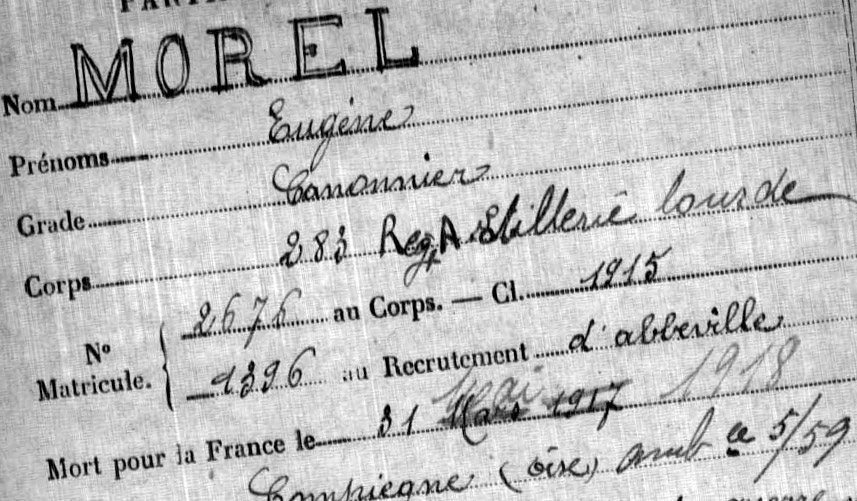 PARTI
Nom MOREL
Prénoms Eugène
Grade Canonnier
Corps 283 Reg.t Artillerie lourde
2676 au Corps. — Cl. 1915
N° Matricule. {
1396 au Recrutement d'abbeville
Mort pour la France le 31 Mai 1918
Compiegne (oise) amb ce 5/59